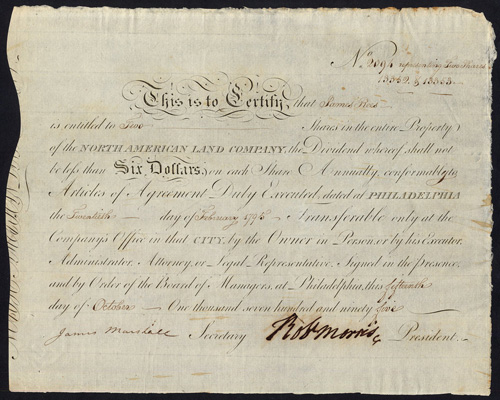 No. 2091 representing Two Shares
13352 & 13353
This is to Certify, that James Rees
is entitled to Two Shares in the entire Property
of the NORTH AMERICAN LAND COMPANY, the Dividend whereof shall not
be less than Six Dollars, on each Share Annually, conformably to
Articles of Agreement Duly Executed, dated at PHILADELPHIA
the Twentieth day of February 1795 Transferable only at the
Company's Office in that CITY, by the Owner in Person, or by his Executor,
Administrator, Attorney, or Legal Representative. Signed in the presence,
and by Order of the Board of Managers, at Philadelphia, this fifteenth
day of October One thousand seven hundred and ninety five
James Marshall Secretary Rob Morris President.